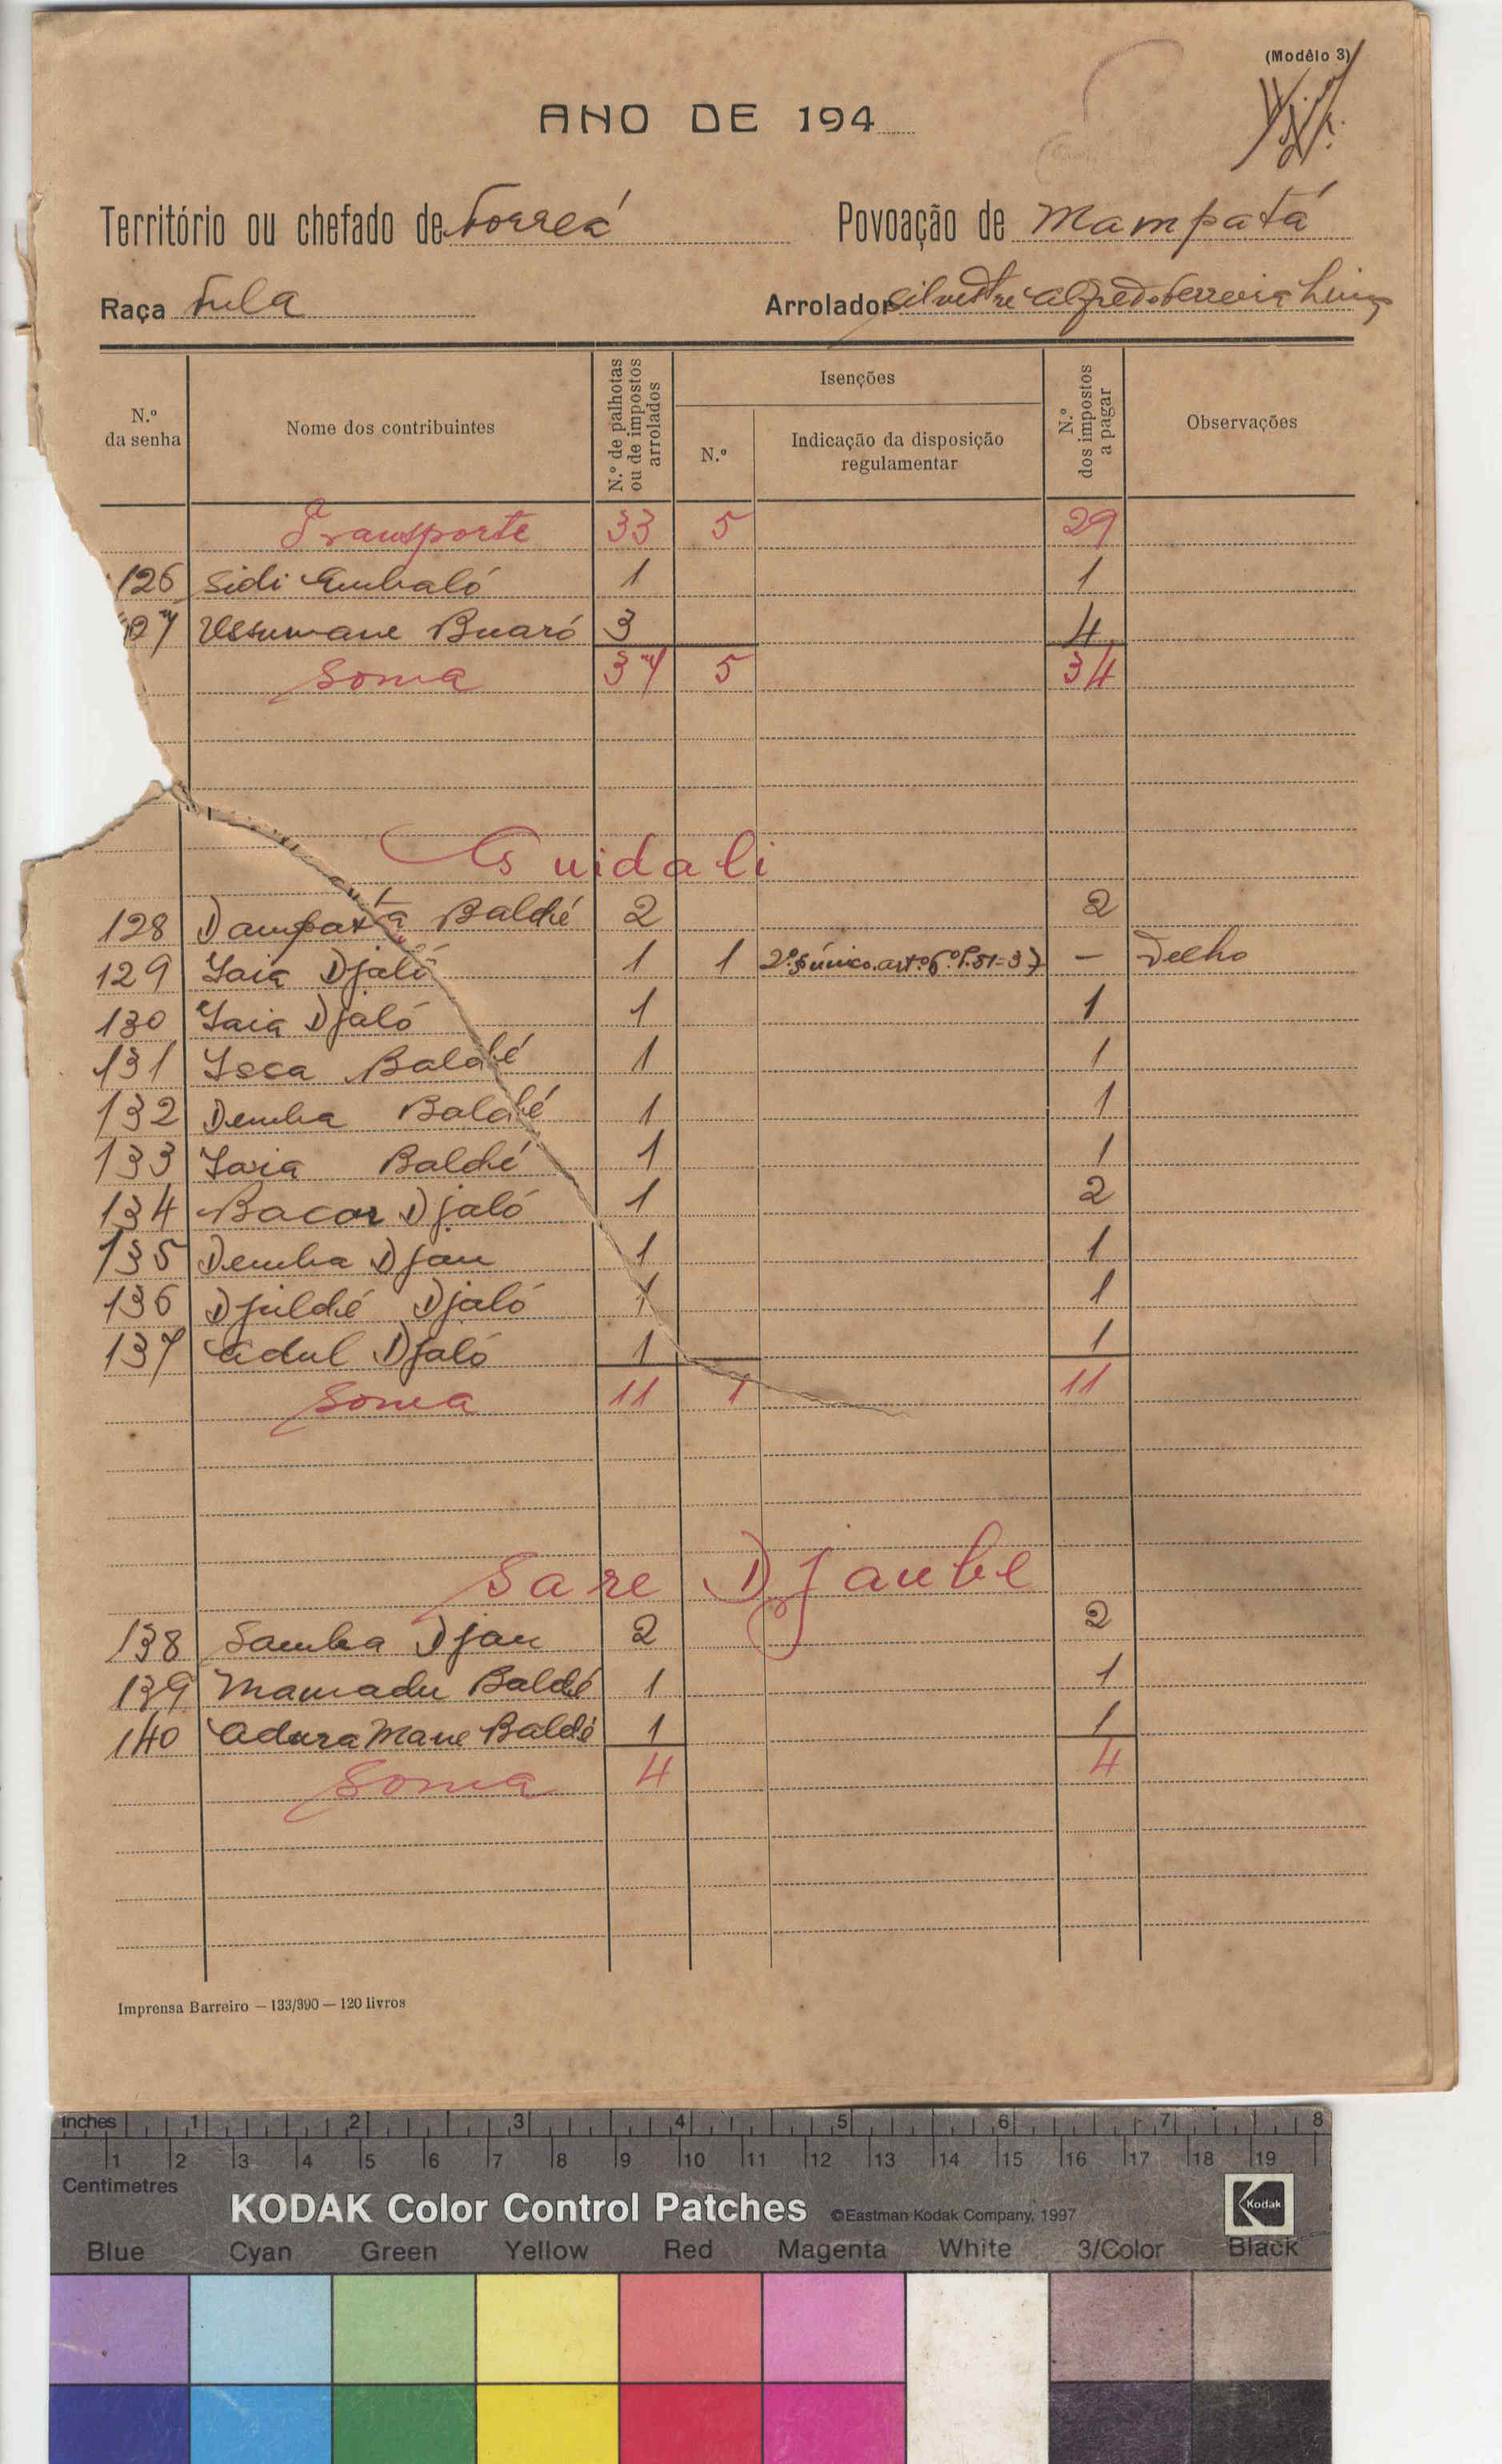 (Modêlo 3)
ANO DE 194
Território ou chefado de Forreá Povoação de Mampatá
Raça Fula Arrolador Silvestre Alfredo Ferreira
N.º da senha
Nome dos contribuintes
N.º de palhotas ou de impostos arrolados
Isenções
N.º
Indicação da disposição regulamentar
N.º dos impostos a pagar
Observações
Transporte 33 5 29
126 Sidi Embaló 1 1
127 Ussumane Buaró 3 4
Soma 37 5 34
Guidali
128 Dampatá Baldé 2 2
129 Iaia Djaló 1 1 2º § único artº 6º — Velho
130 Iaia Djaló 1 1
131 Issa Baldé 1 1
132 Demba Baldé 1 1
133 Iaia Baldé 1 1
134 Bacar Djaló 1 2
135 Demba Djau 1 1
136 Djuldé Djaló 1 1
137 Adul Djaló 1 1
Soma 11 1 11
Sare Djambe
138 Samba Djau 2 2
139 Mamadu Baldé 1 1
140 Adura Mane Baldé 1 1
Soma 4 4
Imprensa Barreiro — 133/390 — 120 livros
inches 1 2 3 4 5 6 7 8
1 2 3 4 5 6 7 8 9 10 11 12 13 14 15 16 17 18 19
Centimetres
KODAK Color Control Patches ©Eastman Kodak Company, 1997 Kodak
Blue Cyan Green Yellow Red Magenta White 3/Color Black